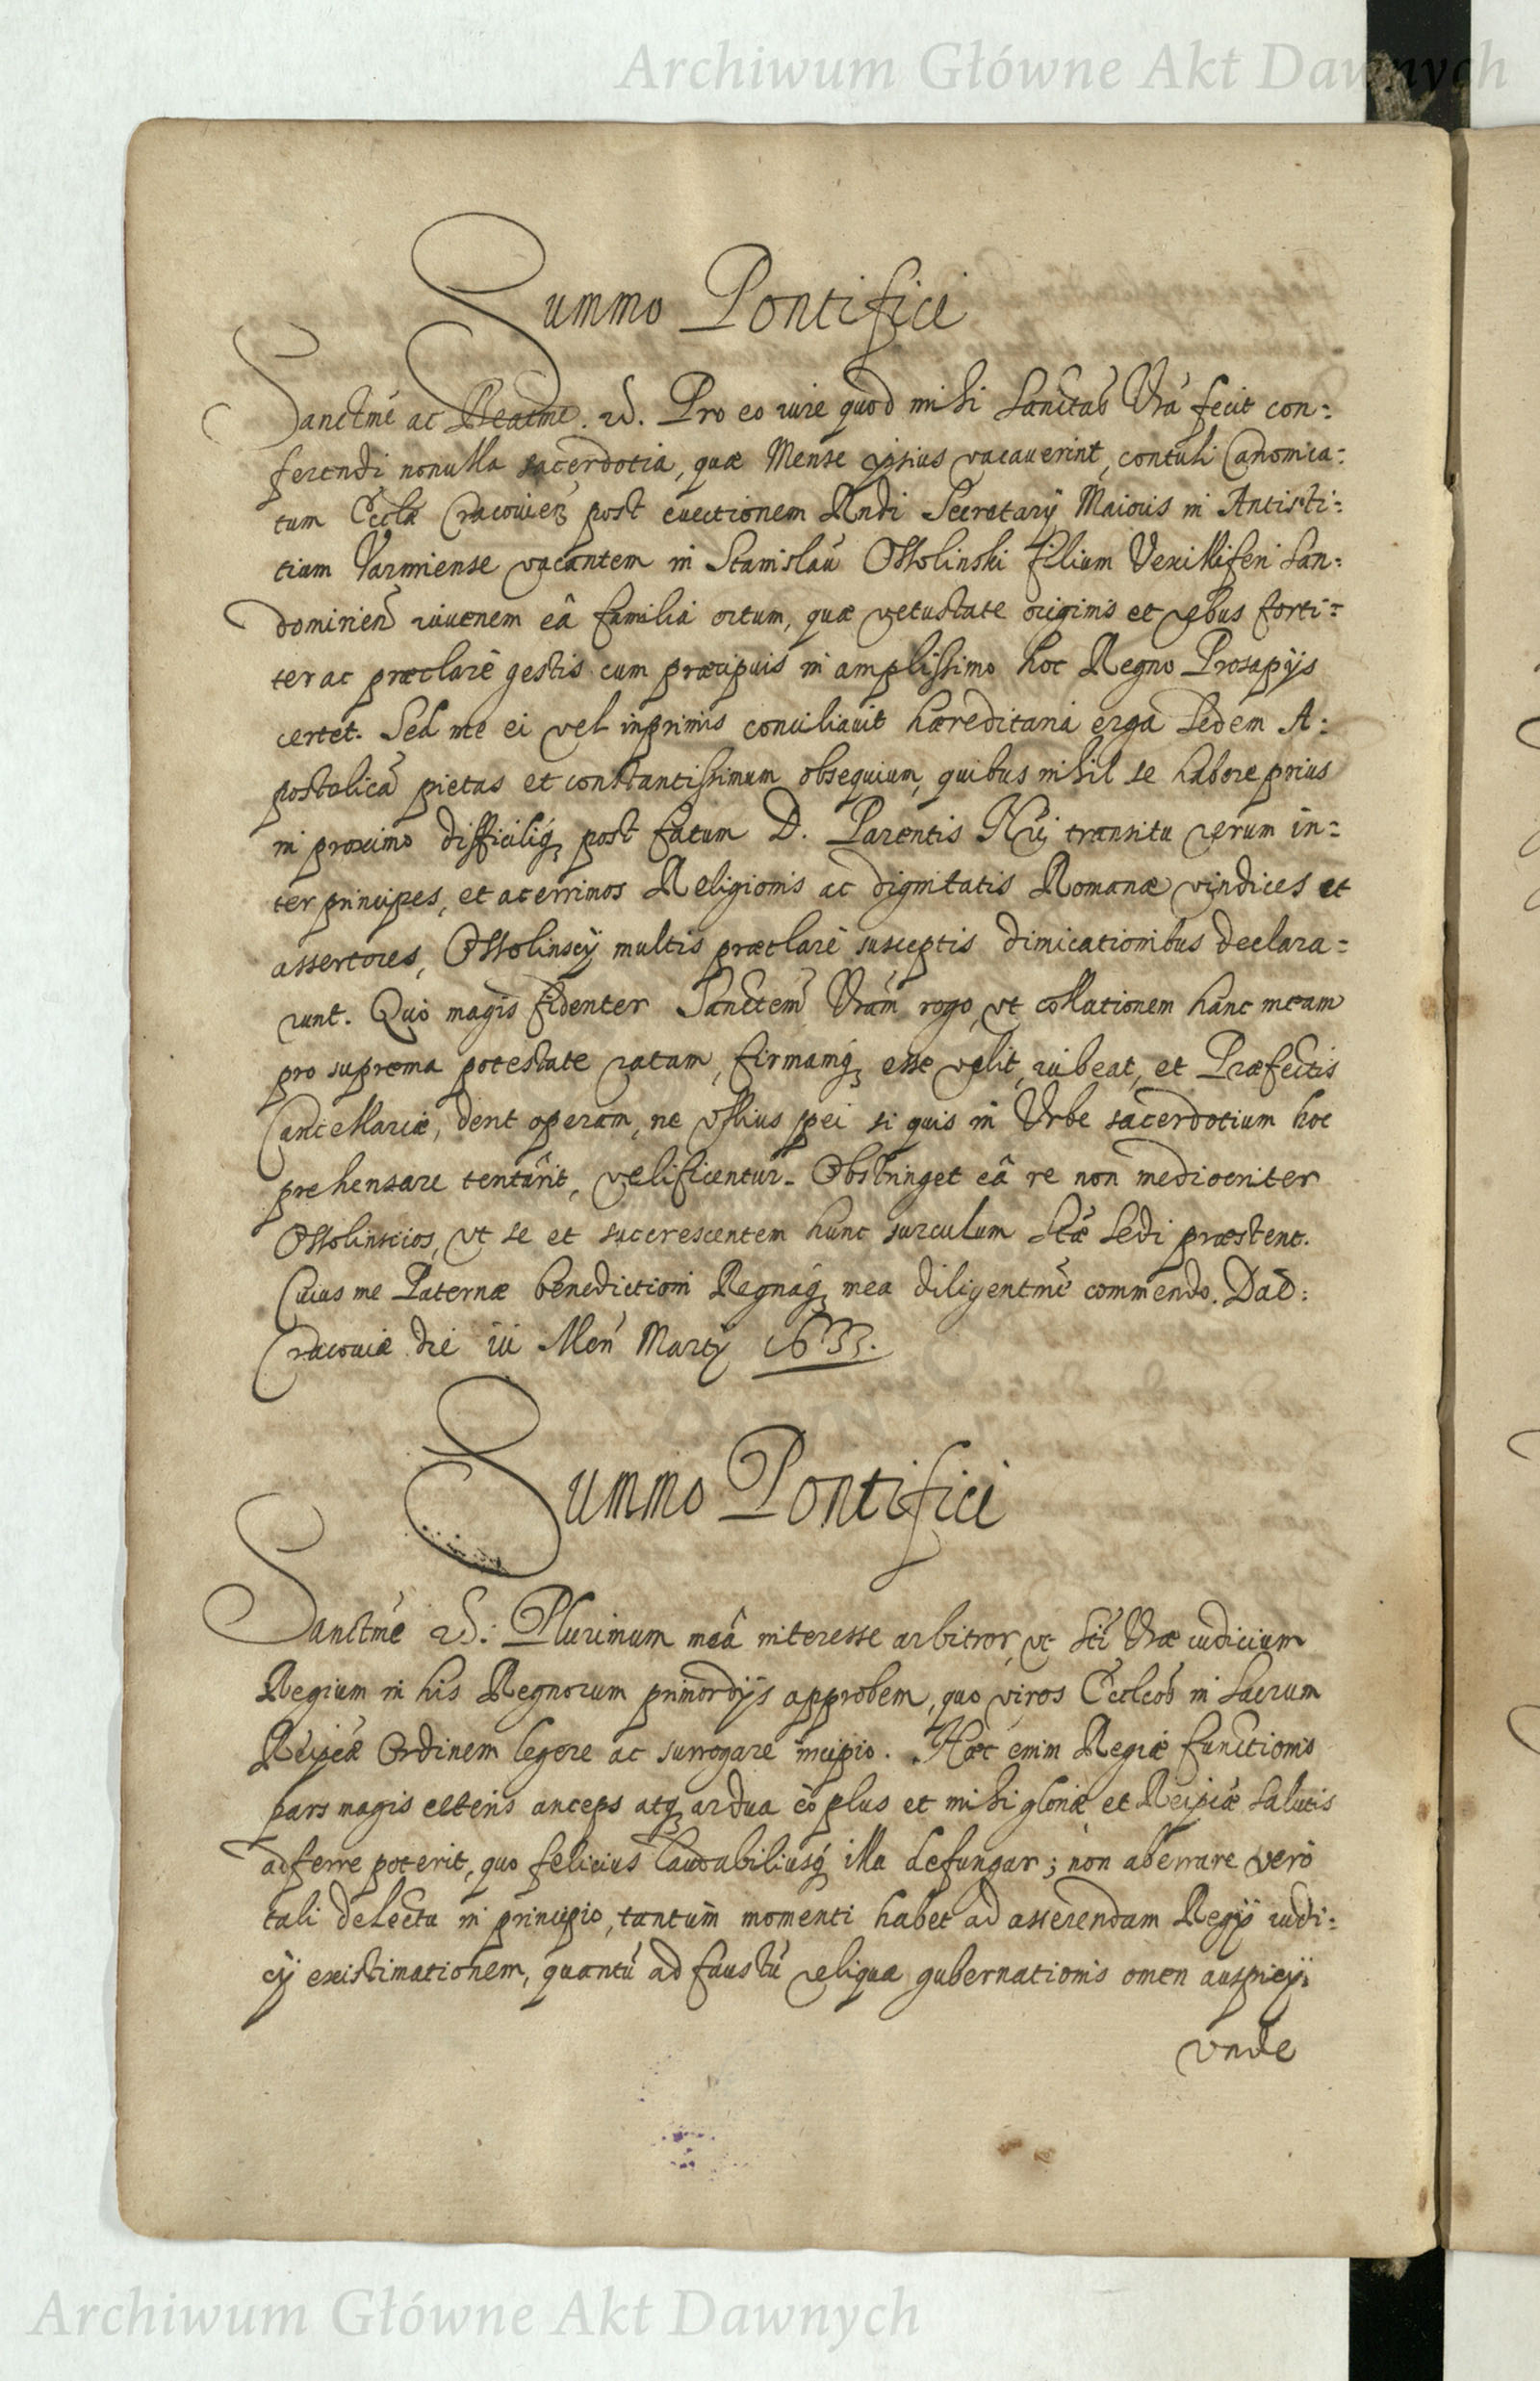 Archiwum Główne Akt Dawnych
Summo Pontifici
Sanctmé ac Beatme. etc. Pro eo iure quod mihi Sanctas Vrá fecit con:
ferendi nonulla sacerdotia, quæ Mense ipsius vacauerint, contuli Canonica:
tum Eccla Cracouien post euectionem Rndi Secretarij Maioris in Antisti:
tium Varmiense vacantem in Stanislaũ Ossolinski filium Vexilliferi San:
domirien iuuenem eâ familiâ ortum, quæ vetustate originis et rebus forti:
ter ac præclarè gestis cum præcipuis in amplissimo hoc Regno Prosapijs
certet. Sed me ei vel inprimis conciliauit hæreditaria erga Sedem A:
postolicã pietas et constantissimum obsequium, quibus nihil se habere prius
in proximo difficiliq; post fatum D. Parentis Nri transitu rerum in:
ter principes, et acerrimos Religionis ac dignitatis Romanæ vindices et
assertores, Ossolinscij multis præclarè susceptis dimicationibus declara:
runt. Quò magis fidenter Sanctem Vram rogo, vt collationem hanc meam
pro suprema potestate ratam, firmamq; esse velit, iubeat, et Præfectis
Cancellariæ, dent operam, ne vllius spei si quis in Vrbe sacerdotium hoc
prehensare tentârit, velificentur. Obstringet eâ re non mediocriter
Ossolinscios, vt se et succrescentem hunc surculum Stæ Sedi præstent.
Cuius me Paternæ benedictioni Regnaq; mea diligentmè commendo. Dat:
Cracouiæ die iii Men Martij 1633.
Summo Pontifici
Sanctmé etc: Plurimum meâ interesse arbitror, vt Sti Vræ iudicium
Regium in his Regnorum primordijs approbem, quo viros Eccleos in Sacrum
Reipcæ Ordinem legere ac surrogare incipio. Hæc enim Regiæ functionis
pars magis cæteris anceps atq; ardua eò plus et mihi gloriæ et Reipcæ salutis
adferre poterit, quo feliciùs laudabiliusq; illa defungar; non aberrare verò
tali delectu in principio, tantum momenti habet ad asserendam Regij iudi:
cij existimationem, quantũ ad faustũ reliquæ gubernationis omen auspicij.
vnde
Archiwum Główne Akt Dawnych